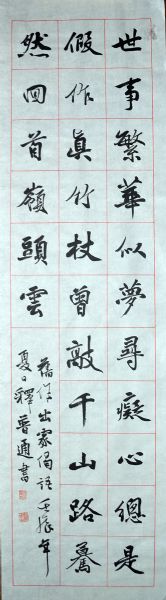 世事繁華似夢尋癡心總是
假作眞竹杖曾敲千山路驀
然回首嶺頭雲
舊作出家偈語壬辰年
夏日釋普通書